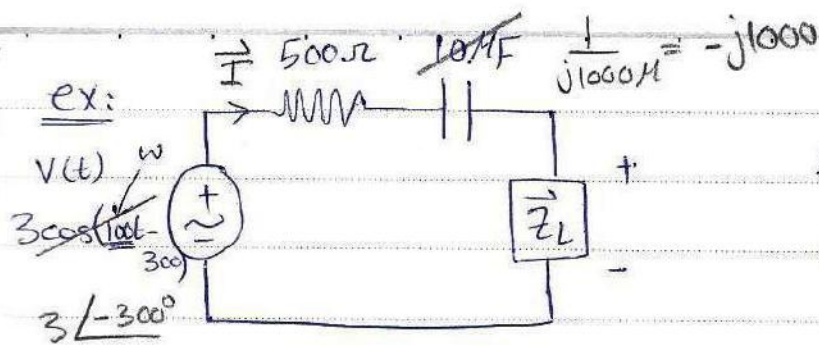 I 500Ω 10μF 1/j1000μ = -j1000
ex:
V(t) w
3cos(100t-
300)
3∠-300°
+
~
-
Z_L
+
-